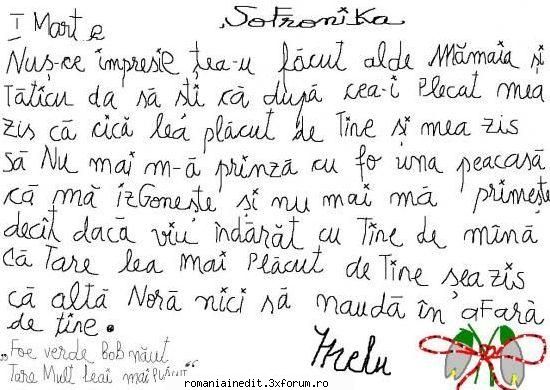 Sofronika
1 Marte
Nuș-ce impresie țea-u făcut alde Mămaia și
Tăticu da să sti că după cea-i Plecat mea
zis că cică lea plăcut de Tine și mea zis
să Nu mai m-ă prinză cu fo una peacasă
că mă izGonește și nu mai mă primește
decît dacă viu îndărăt cu Tine de mînă
că Tare lea mai Plăcut de Tine sea zis
că altă Noră nici să naudă în aFară
de tine.
„Foe verde BoB năut
Tare Mult leai mai Plăcut“
romaniainedit.3xforum.ro